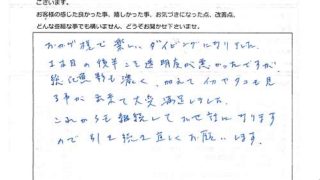 ございます。
お客様の感じた良かった事、嬉しかった事、お気づきになった点、改善点、
どんな些細な事でも構いません、どうぞお聞かせ下さいませ。
おかげ様で楽しいダイビングになりました。
1本目の後半こそ透明度が悪かったですが、
総じて魚影も濃く、加えてイカやタコも見る
事が出来て大変満足しました。
これからも継続して お世話になります
ので引き続き宜しくお願いします。